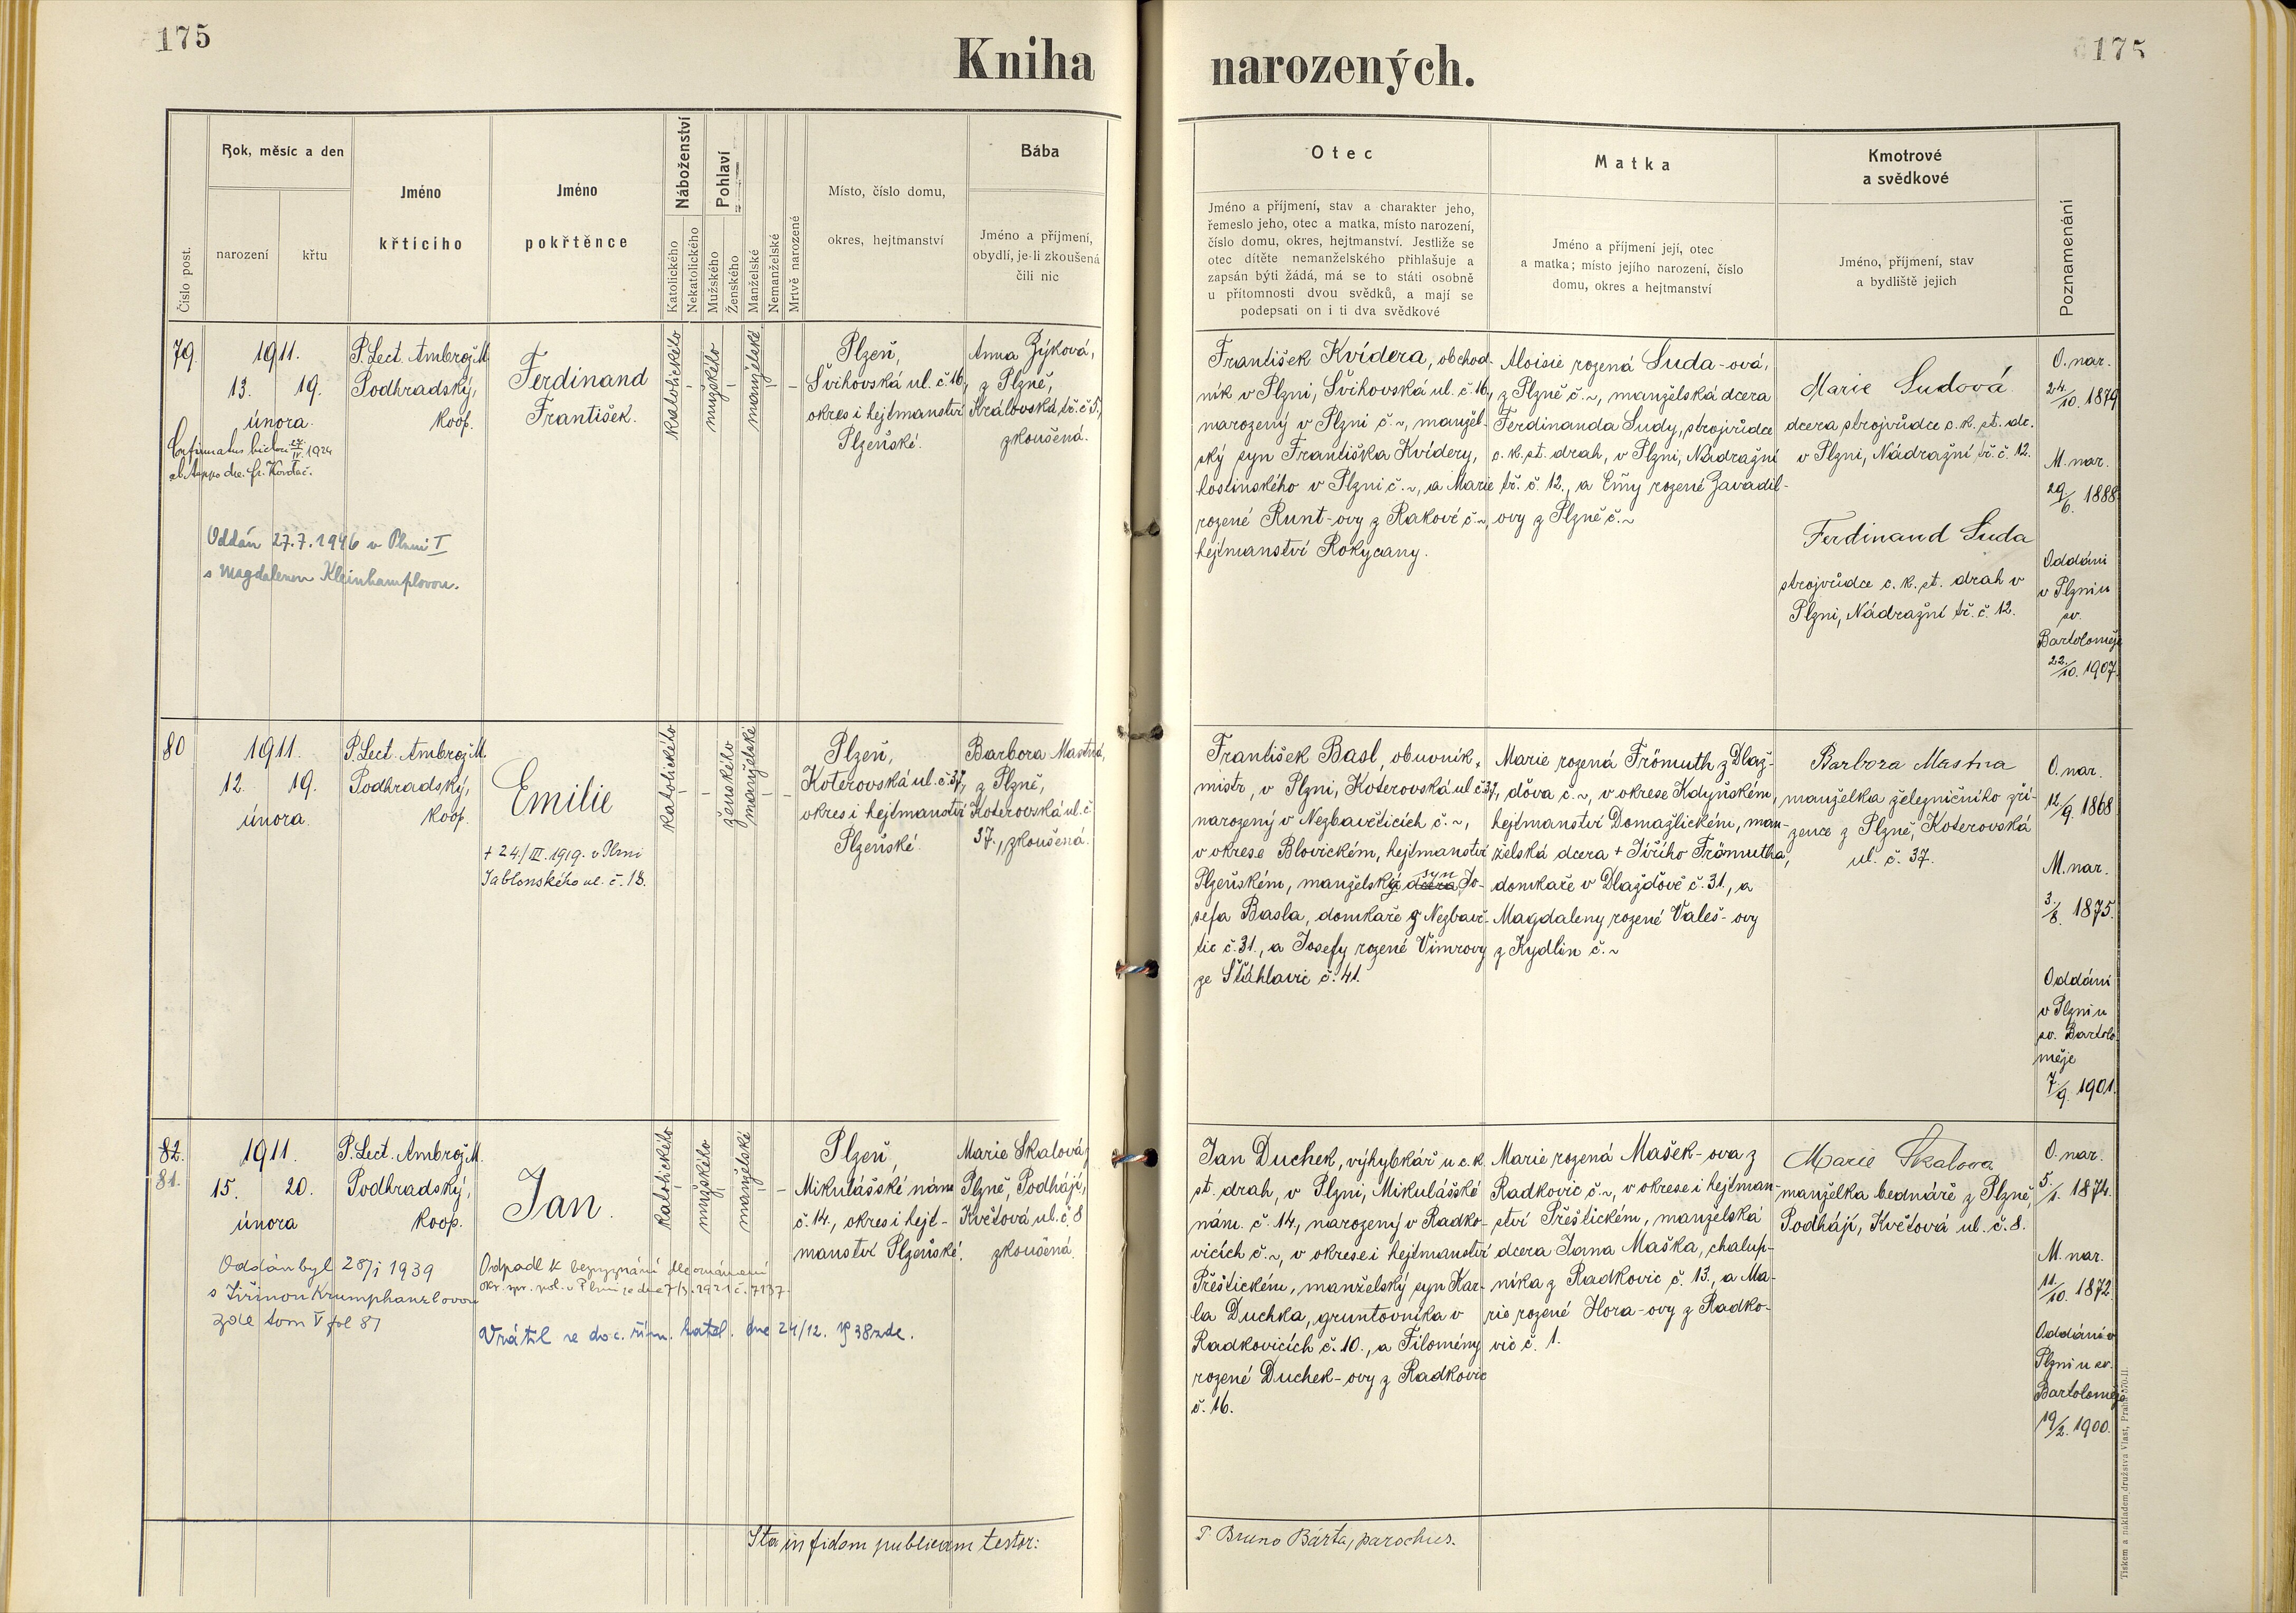 175
175
Kniha narozených.
Číslo post.
Rok, měsíc a den
narození
křtu
Jméno
křtícího
Jméno
pokřtěnce
Náboženství
Katolického
Nekatolického
Pohlaví
Mužského
Ženského
Manželské
Nemanželské
Mrtvě narozené
Místo, číslo domu,
okres, hejtmanství
Bába
Jméno a příjmení,
obydlí, je-li zkoušená
čili nic
Otec
Jméno a příjmení, stav a charakter jeho,
řemeslo jeho, otec a matka, místo narození,
číslo domu, okres, hejtmanství. Jestliže se
otec dítěte nemanželského přihlašuje a
zapsán býti žádá, má se to státi osobně
u přítomnosti dvou svědků, a mají se
podepsati on i ti dva svědkové
Matka
Jméno a příjmení její, otec
a matka; místo jejího narození, číslo
domu, okres a hejtmanství
Kmotrové
a svědkové
Jméno, příjmení, stav
a bydliště jejich
Poznamenání
79.
1911.
13. 19.
února.
24/IV. 1924
Oddán 27.7.1946 v Plzni I
s Magdalenou Kleinhamplovou.
P. Lect. Ambrož M.
Podhradský,
koop.
Ferdinand
František.
katolického
mužského
manželské
Plzeň,
Švihovská ul. č. 16,
okres i hejtmanství
Plzeňské.
Anna Zýková,
z Plzně,
Královská tř. č. 5,
zkoušená.
František Kvídera, obchod-
ník v Plzni, Švihovská ul. č. 16,
narozený v Plzni č. ~, manžel-
ský syn Františka Kvídery,
hostinského v Plzni č. ~, a Marie
rozené Runt-ovy z Rakové č. ~,
hejtmanství Rokycany.
Aloisie rozená Suda-ová,
z Plzně č. ~, manželská dcera
Ferdinanda Sudy, strojvůdce
c. k. st. drah, v Plzni, Nádražní
tř. č. 12., a Emy rozené Zavadil-
ovy z Plzně č. ~
Marie Sudová
dcera strojvůdce c. k. st. dr.
v Plzni, Nádražní tř. č. 12.
Ferdinand Suda
strojvůdce c. k. st. drah v
Plzni, Nádražní tř. č. 12.
O. nar.
24./10. 1879
M. nar.
29/6. 1888.
Oddáni
v Plzni u
sv.
Bartoloměje
22./10. 1907.
80
1911.
12. 19.
února.
P. Lect. Ambrož M.
Podhradský,
koop.
Emilie
+ 24./III. 1919. v Plzni
Jablonského ul. č. 18.
katolického
ženského
manželské
Plzeň,
Koterovská ul. č. 37,
okres i hejtmanství
Plzeňské.
Barbora Mastná,
z Plzně,
Koterovská ul. č.
37., zkoušená.
František Basl, obuvník,
mistr, v Plzni, Koterovská ul. č. 37,
narozený v Nezbavěticích č. ~,
v okrese Blovickém, hejtmanství
Plzeňském, manželský dcera syn Jo-
sefa Basla, domkaře z Nezbavě-
tic č. 31., a Josefy rozené Vimrovy
ze Šťáhlavic č. 41.
Marie rozená Frömuth z Dlaž-
ďova č. ~, v okrese Kdyňském,
hejtmanství Domažlickém, man-
želská dcera + Jiřího Frömutha,
domkaře v Dlažďově č. 31., a
Magdaleny rozené Valeš-ovy
z Kydlin č. ~
Barbora Mastna
manželka železničního zří-
zence z Plzně, Koterovská
ul. č. 37.
O. nar.
12/9. 1868
M. nar.
3./8. 1875.
Oddáni
v Plzni u
sv. Bartolo-
měje
7./9. 1901.
82.
81.
1911.
15. 20.
února
Oddán byl 28/1 1939
s Jiřinou Krumphanzlovou
zde tom V fol 81
P. Lect. Ambrož M.
Podhradský,
koop.
Jan.
Odpadl k bezvyznání dle oznámení
okr. spr. pol. v Plzni ze dne 7/3. 1921 č. 7137.
Vrátil se do c. řím. katol. dne 24/12. 1938 zde.
katolického
mužského
manželské
Plzeň
Mikulášské nám.
č. 14., okres i hejt-
manství Plzeňské.
Marie Skalová,
Plzně, Podhájí,
Květová ul. č. 8
zkoušená.
Jan Duchek, výhybkář u c. k.
st. drah, v Plzni, Mikulášské
nám. č. 14, narozený v Radko-
vicích č. ~, v okrese i hejtmanství
Přeštickém, manželský syn Kar-
la Duchka, gruntovníka v
Radkovicích č. 10., a Filomény
rozené Duchek-ovy z Radkovic
č. 16.
Marie rozená Mašek-ova z
Radkovic č. ~, v okrese i hejtman-
ství Přeštickém, manželská
dcera Jana Maška, chalup-
níka z Radkovic č. 13., a Ma-
rie rozené Hora-ovy z Radko-
vic č. 1.
Marie Skalova
manželka bednáře z Plzně,
Podhájí, Květová ul. č. 8.
O. nar.
5./1. 1874.
M. nar.
11./10. 1872.
Oddáni v
Plzni u sv.
Bartoloměje
19/2. 1900.
Ita in fidem publicam testor:
P. Bruno Bárta, parochus.
Tiskem a nákladem družstva Vlast, Praha